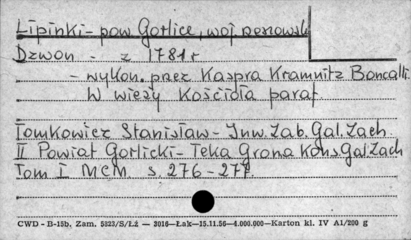 Lipinki - pow. Gorlice, woj rzeszowsk
Dzwon - z 1781 r
- wykon. przez Kaspra Kramnitz Boncalli.
W wieży Kościoła paraf.
Tomkowicz Stanisław - Inw. Zab. Gal. Zach.
II Powiat Gorlicki - Teka Grona Kons Gal Zach
Tom I MCM s. 276-277
CWD - B-15b, Zam. 5823/S/Łż — 3016—Łak—15.11.56—4.000.000—Karton kl. IV A1/200 g